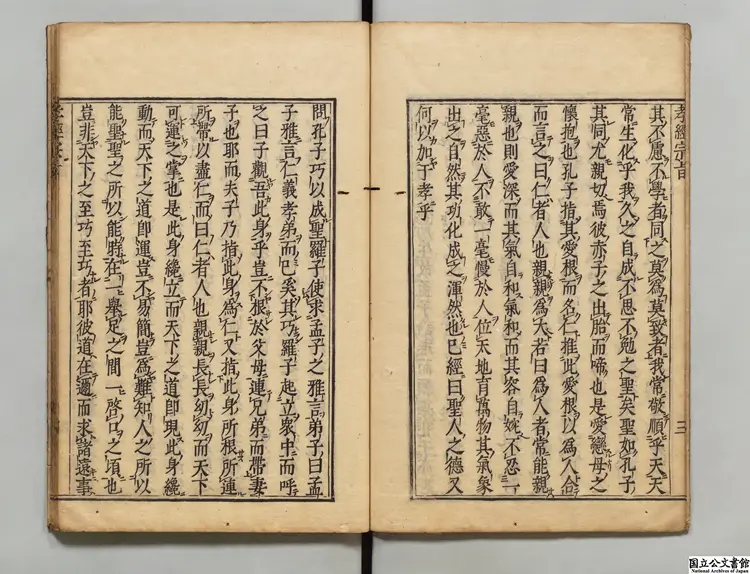 孝經宗旨
三
其不慮不學者同之莫爲莫致者我常敬順乎天天
常生化乎我久之自成不思不勉之聖矣聖如孔子
其同尤親切焉彼赤子之出胎而啼也是愛戀母之
懷抱也孔子指其愛根而名仁推此愛根以爲人合
而言之曰仁者人也親親爲大若曰爲人者常能親
親也則愛深而其氣自和氣和而其容自婉不忍一
毫惡於人不敢一毫慢於人位天地育萬物其氣象
出之自然其功化成之渾然也已經曰聖人之德又
何以加于孝乎
問孔子巧以成聖羅子使求孟子之雅言弟子曰孟
子雅言仁義孝弟而已矣其巧羅子起立衆中而呼
之曰子觀吾此身乎豈不根於父母連兄弟而帶妻
子也耶而夫子乃指此身爲仁又指此身所根所連
所帶以盡仁而曰仁者人也親親長長幼幼而天下
可運之掌也是此身纔立而天下之道即現此身纔
動而天下之道即運豈不易簡豈爲難知人之所以
能聖聖之所以能時在一舉足之間一啓口之頃也
豈非天下之至巧至巧者耶彼道在邇而求諸遠事
国立公文書館
National Archives of Japan